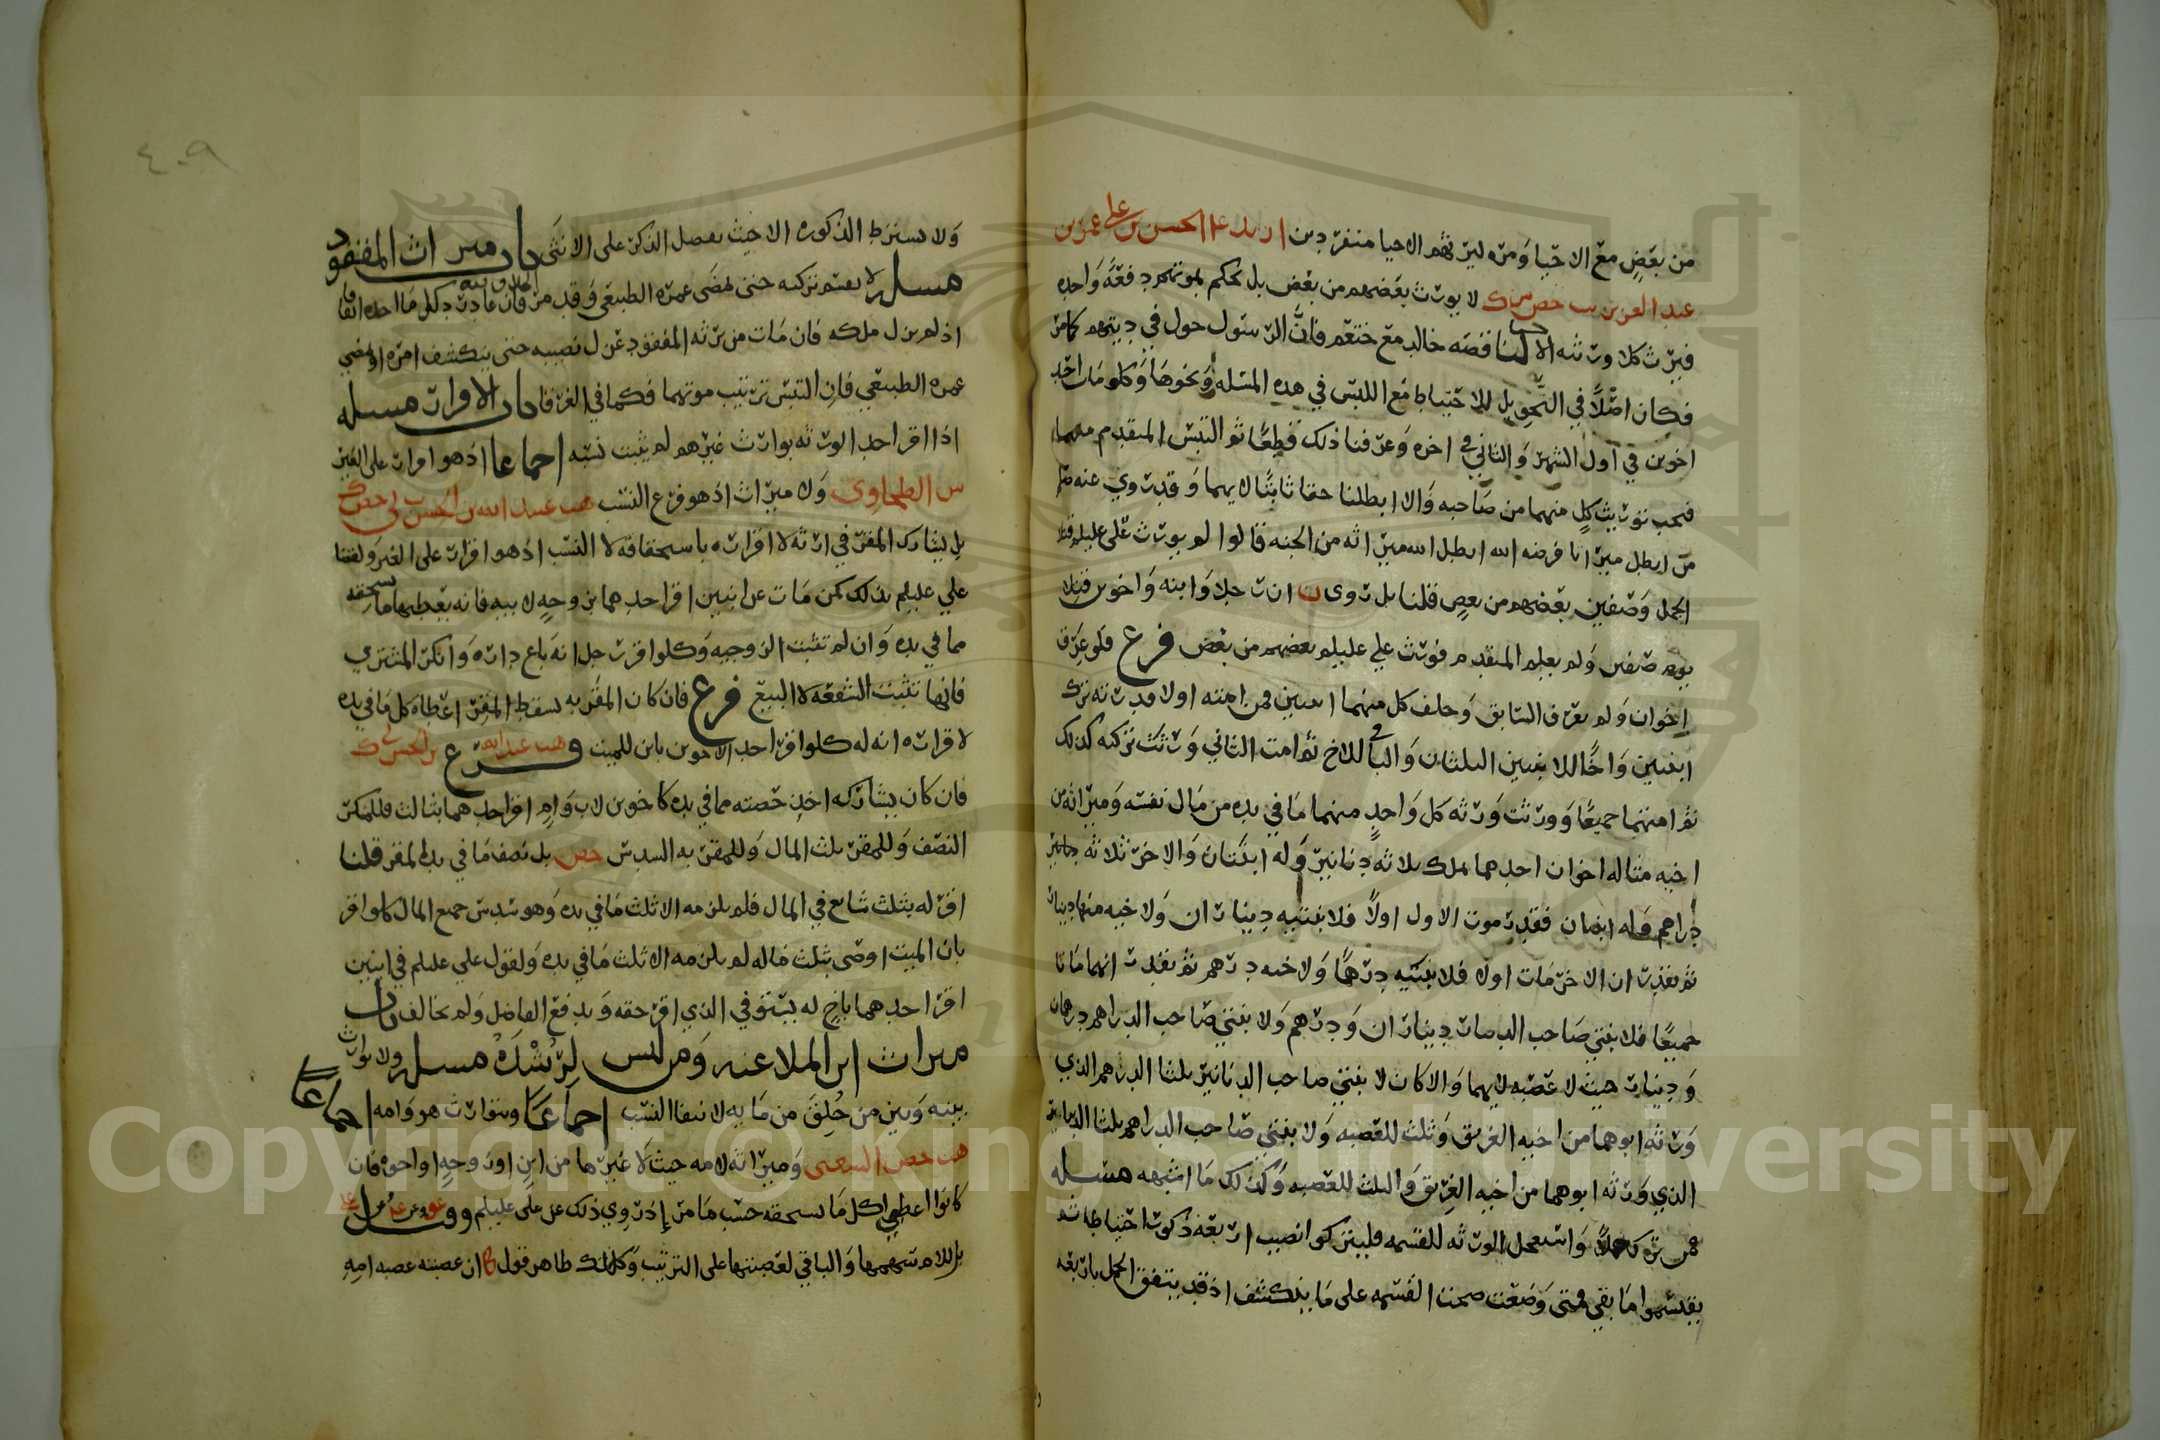 من بعض مع الاحيا ومره ليرثهم الاحيا منفردين الحسن بن علي عمر بن
عبد العزيز لا يورث بعضهم من بعض بل نحكم بموتهم دفعة واحده
فيرث كلا ورثته الاحيا لنا قصه خالد مع خثعم فان الرسول حول في ديتهم كما مر
فكان اصلا في التحويل للاحتياط مع اللبس في هذه المسله ونحوها وكلو مات احد
اخوين في اول الشهر والثاني في اخره وعرفنا ذلك قطعا ثم التبس المتقدم منهما
فيجب توريث كل منهما من صاحبه والا ابطلنا حقا ثابتا لايهما وقد روي عنه صلعم
من ابطل ميراثا فرضه الله ابطل الله ميراثه من الجنه قالوا لم يورث علي عليلم قتلا
الجمل وصفين بعضهم من بعض قلنا بل روى ان رجلا وابنه واخوين قتلا
يوم صفين ولم يعلم المتقدم فورث علي عليلم بعضهم من بعض فرع فلو غرق
اخوان ولم يعرف السابق وخلف كل منهما ابنتين فمن امته اولا قدرته ترك
ابنتين واخا للابنتين الثلثان والباقي للاخ ثم امت الثاني ورثت تركته كذلك
ثم امتهما جميعا وورثت ورثه كل واحد منهما ما في يده من مال نفسه وميراثه من
اخيه مثاله اخوان احدهما يملك ثلاثه دنانير وله ابنتان والاخر ثلاثه
دراهم وله ابنتان فقدر موت الاول اولا فلابنتيه ديناران ولاخيه منها دينار
ثم تقدر ان الاخر مات اولا فلابنتيه درهما ولاخيه درهم ثم تقدر انهما ماتا
جميعا فلابنتي صاحب الدينار ديناران ودرهم ولابنتي صاحب الدراهم درهمان
ودينار حيث لا عصبه لايهما والا كان لابنتي صاحب الدنانير ثلثا الدرهم الذي
ورثه ابوهما من اخيه الغريق وثلث للعصبه ولابنتي صاحب الدراهم ثلثا الدينار
الذي ورثه ابوهما من اخيه الغريق والثلث للعصبه وكذلك ما اشبهه مسله
فمن ترك حملا واستعجل الورثه للقسمه فليتركوا نصيب اربعه ذكور احتياطا ثم
يقتسموا ما بقي فمتى وضعت صحت القسمه على ما ينكشف اذ قد يتفق الحمل باربعه
٤٠٩
ولا يشترط الذكوره الا حيث يفضل الذكر على الانثى باب ميراث المفقود
مسله لا يقسم تركته حتى يمضي عمره الطبيعي وقد مر فان عاد رد كل ما اخذ اتفاقا
اذ لم يزل ملكه فان مات من يرثه المفقود عزل نصيبه حتى ينكشف امره او يمضي
عمره الطبيعي فان التبس ترتيب موتهما فكما في الغرقا باب الاقرار مسله
اذا اقر احد الورثه بوارث غيرهم لم يثبت نسبه اجماعا اذ هو اقرار على الغير
الطحاوي ولا ميراث اذ هو فرع النسب
بل يشارك المقر في ارثه لاقراره باستحقاقه لا النسب اذ هو اقرار على الغير ولقضا
علي عليلم بذلك كمن مات عن ابنين اقر احدهما بزوجه لابيه فانه يعطيها ما تستحقه
مما في يده وان لم تثبت الزوجيه وكلو اقر رجل انه باع داره وانكر المشتري
فانها تثبت الشفعه لا البيع فرع فان كان المقر به يسقط المقر اعطاه كل ما في يده
لاقراره انه له كلو اقر احد الاخوين بابن للميت فرع
فان كان يشاركه اخذ حصته مما في يده كاخوين لاب وام اقر احدهما بثالث فللمنكر
النصف وللمقر ثلث المال وللمقر به السدس بل نصف ما في يد المقر قلنا
اقر له بثلث شايع في المال فلم يلزمه الا ثلث ما في يده وهو سدس جميع المال كلو اقر
بان الميت اوصى بثلث ماله لم يلزمه الا ثلث ما في يده ولقول علي عليلم في ابنين
اقر احدهما باخ له يستوفي الذي اقر حقه ويدفع الفاضل ولم يخالف باب
ميراث ابن الملاعنه ومن ليس لرشده مسله ولا توارث
بينه وبين من خلق من مايه لانتفا النسب اجماعا ويتوارث هو وامه اجماعا
وميراثه لامه حيث لا غيرها من ابن او زوجه او اخوه فان
كانوا اعطي كل ما يستحقه حسب ما مر اذ روي ذلك عن علي عليلم
بل للام سهمها والباقي لعصبتها على الترتيب وكذلك ظاهر قول ان عصبته عصبه امه